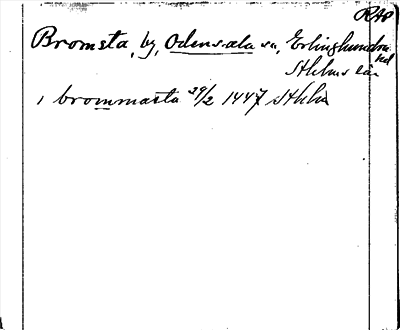 RAP
Bromsta, by, Odensala sn, Erlinghundra hd
Sthlms län
i brommasta 29/2 1447 Sthlm